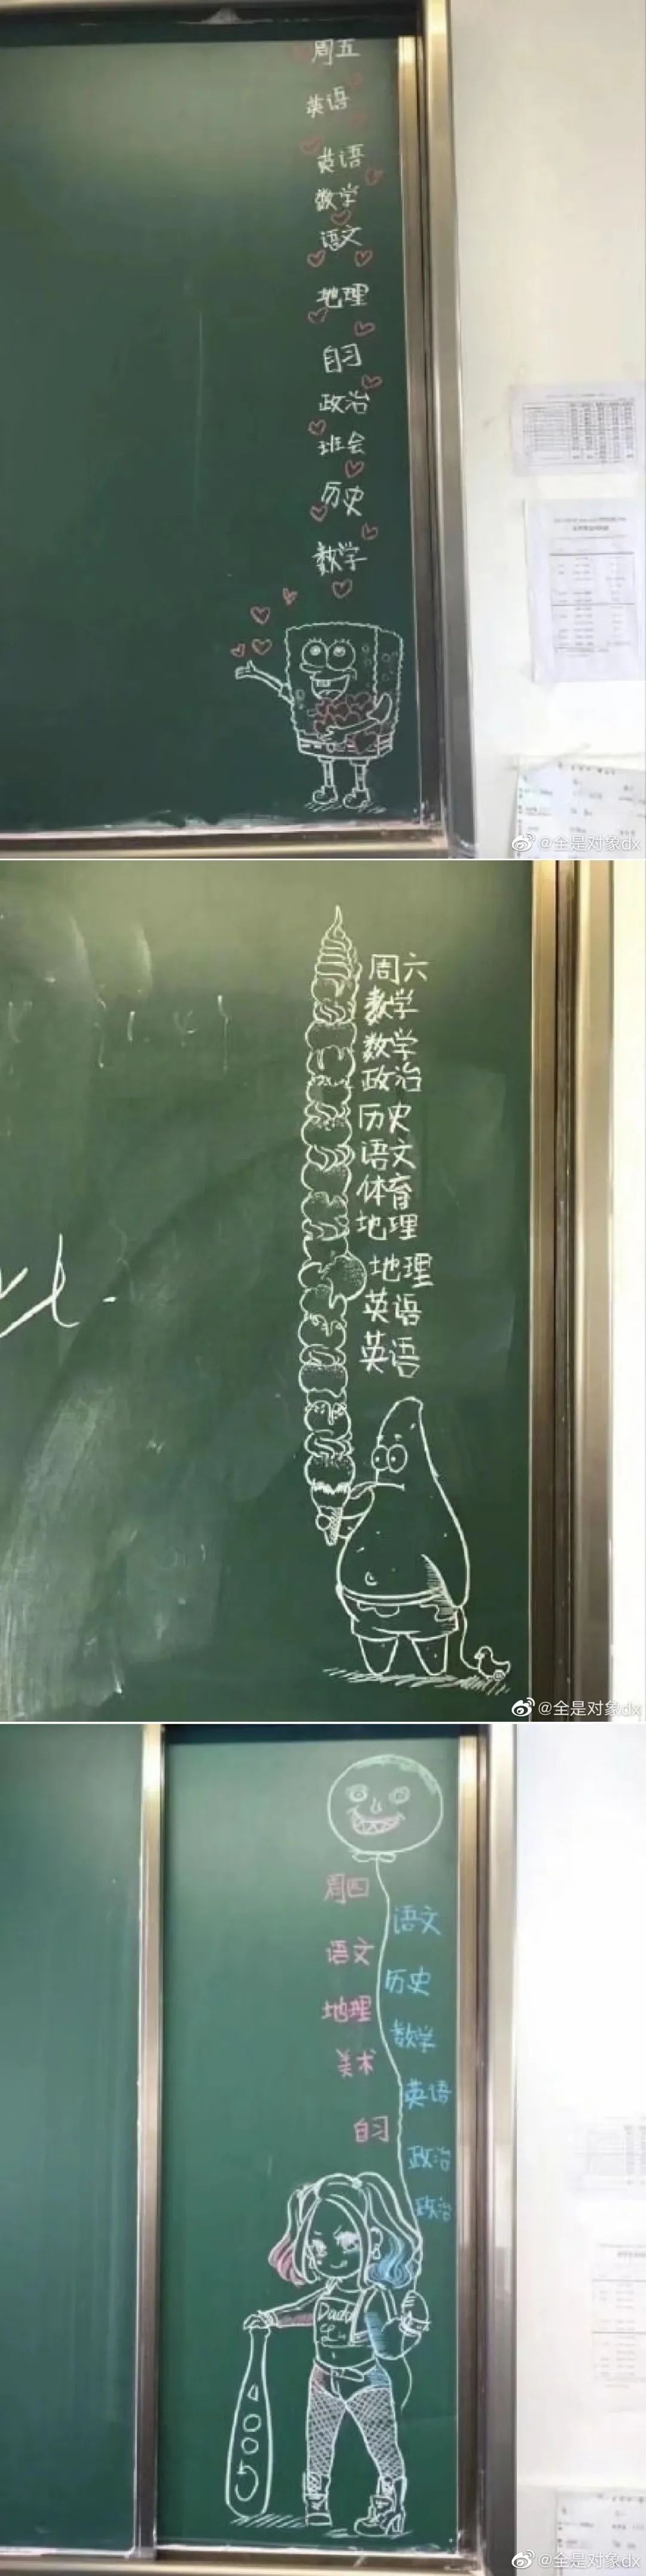 周五
英语
英语
数学
语文
地理
自习
政治
班会
历史
数学
@全是对象dx
周六
数学
数学
政治
历史
语文
体育
地理
地理
英语
英语
@全是对象dx
周四
语文
地理
美术
自习
语文
历史
数学
英语
政治
政治
@全是对象dx